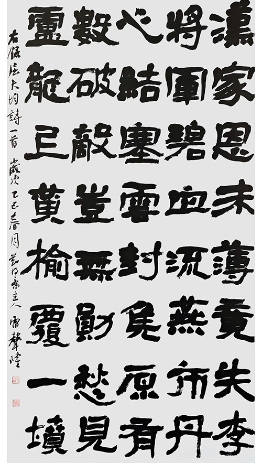 漢家恩未薄竟失李
將軍碧血流燕市丹
心結塞雲封侯原有
數破敵豈無勛愁見
龍黃榆覆一墳
右錄屈大均詩一首 歲次乙巳春月主人